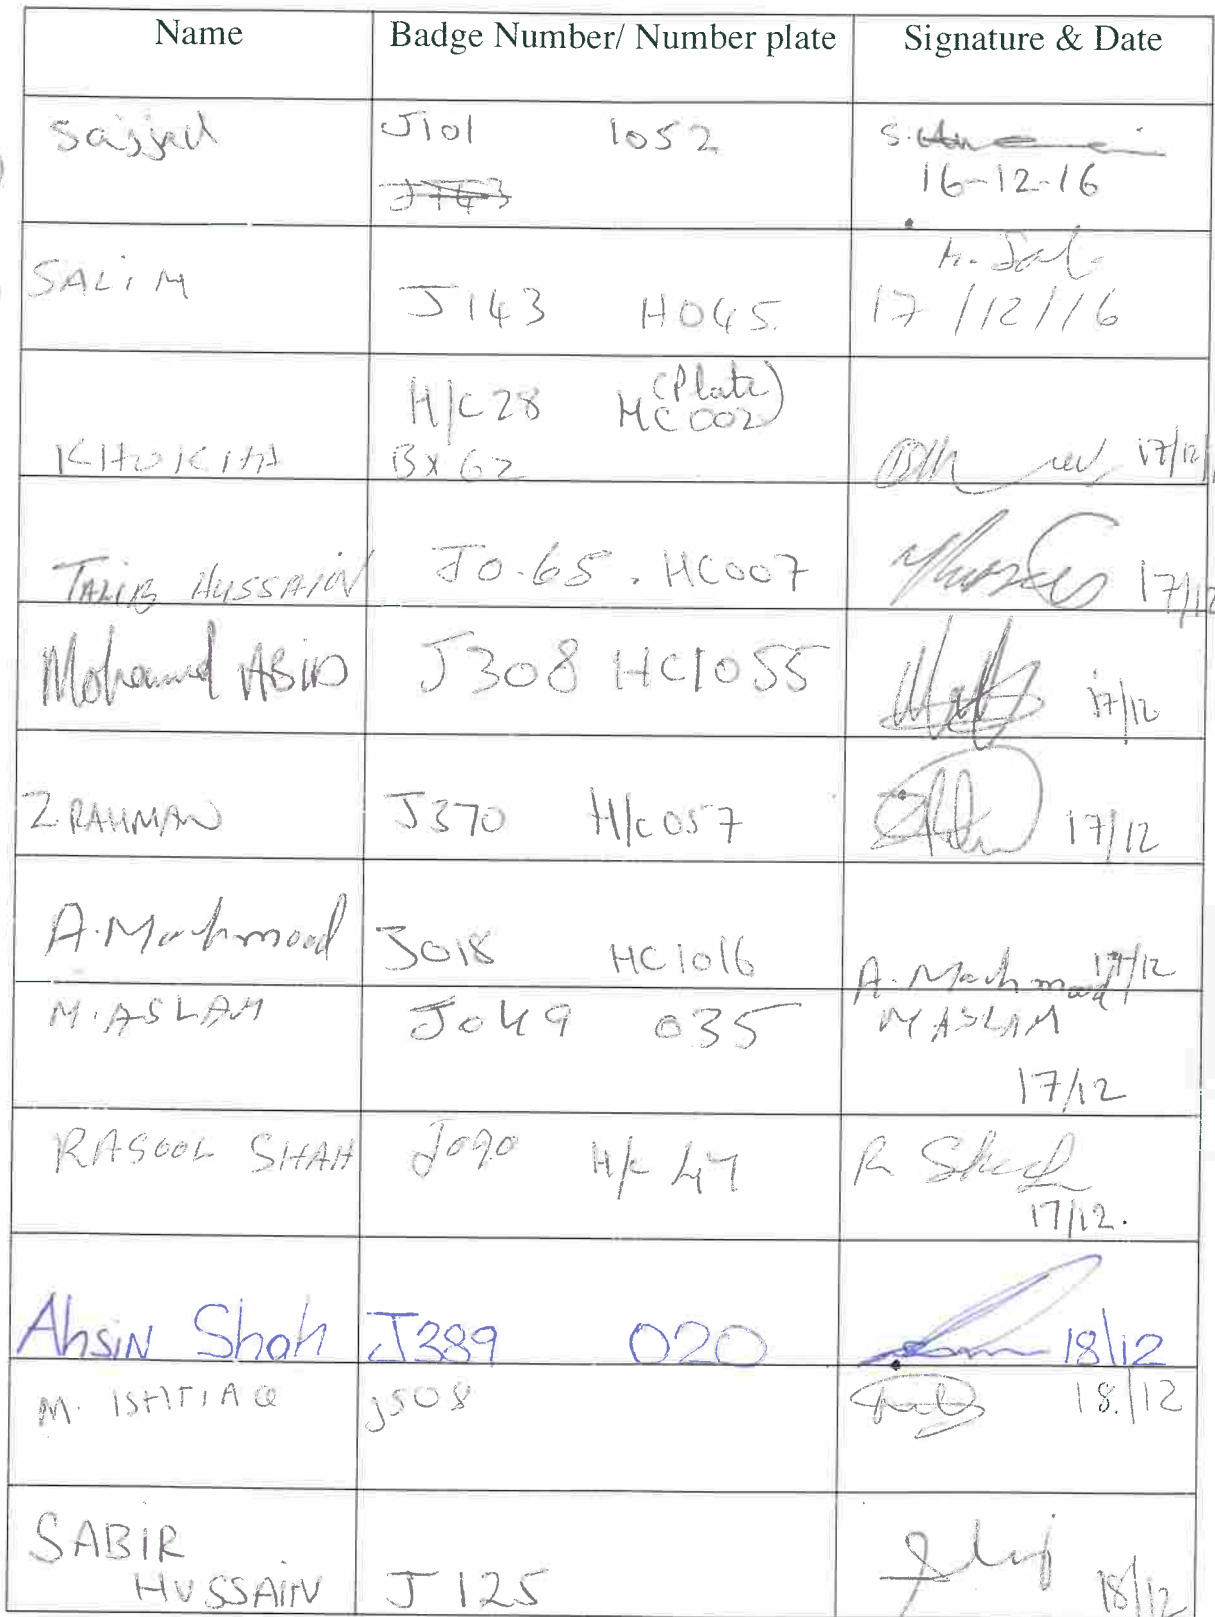 Name Badge Number/ Number plate Signature & Date
Sajjad J101 1052 S.
J143 16-12-16
SALIM J143 H045 17/12/16
H/C28 (Plate) HC002
KHOKHA BX62 17/12/
TALIB HUSSAIN J0.65. HC007 17/12
Mohamed ABID J308 HC1055 17/12
Z RAHMAN J370 H/C057 17/12
A.Machmood J018 HC1016 A.Machmood 17/12
M.ASLAM J049 035 M ASLAM
17/12
RASOOL SHAH J090 H/C 47 R Shah
17/12.
Ahsin Shah J389 020 18/12
M. ISHTIAQ J508 18/12
SABIR
HUSSAIN J125 18/12